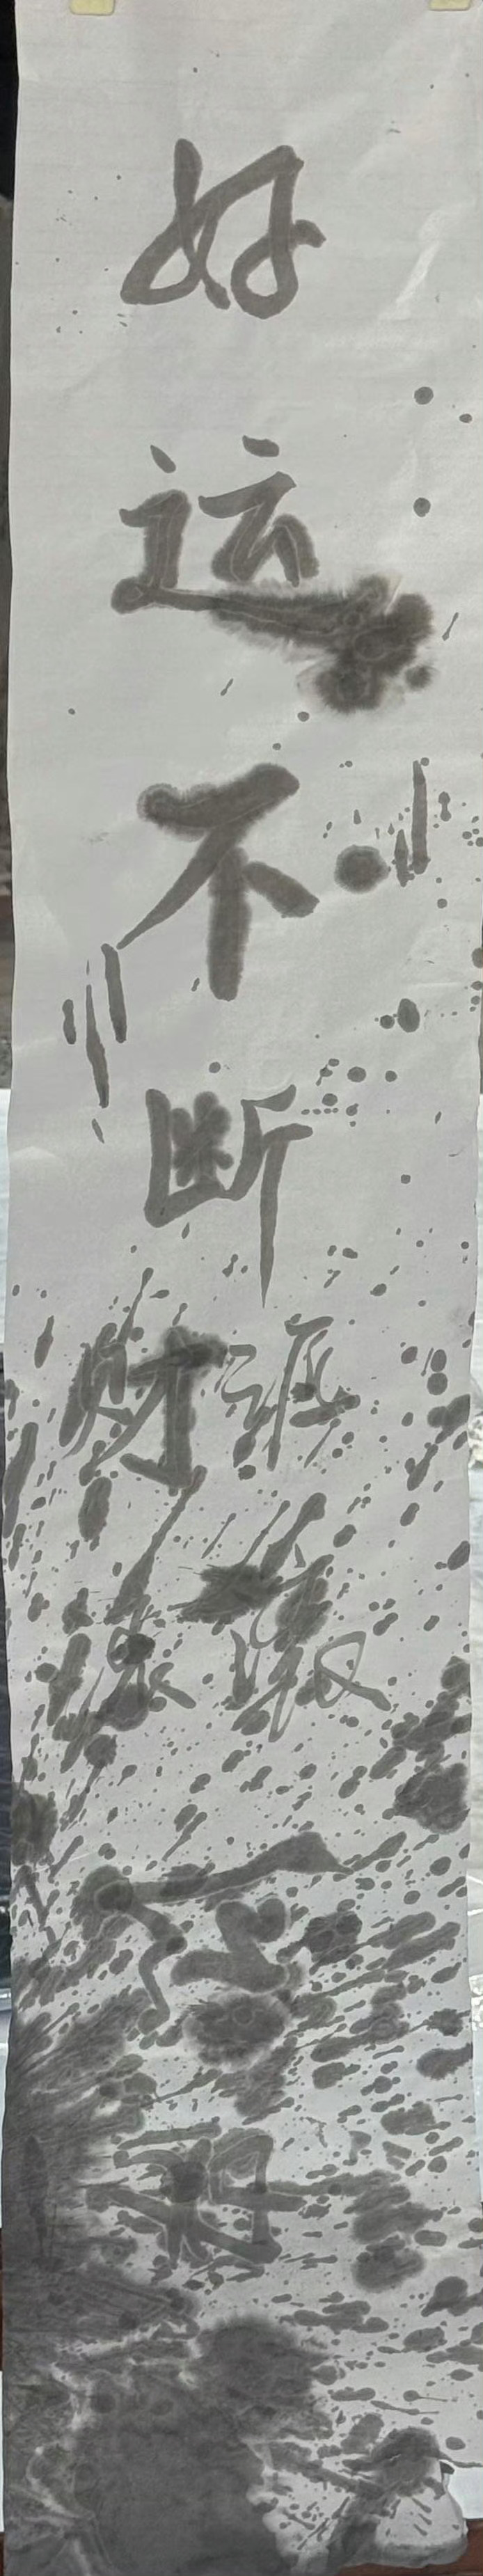 好运不断
财源
滚滚